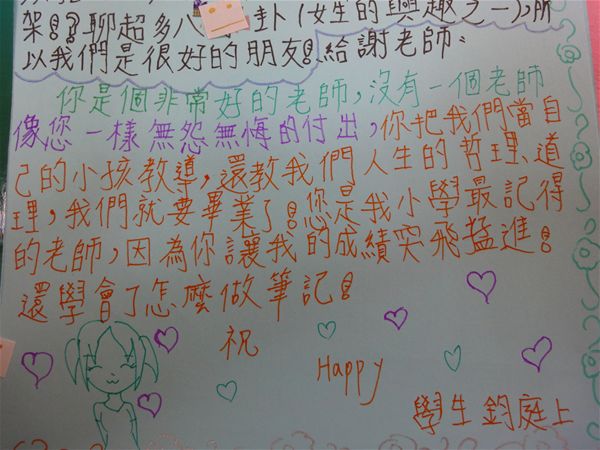 架!?聊超多八卦(女生的興趣之一),所
以我們是很好的朋友!給謝老師:
你是個非常好的老師,沒有一個老師
像您一樣無怨無悔的付出,你把我們當自
己的小孩教導,還教我們人生的哲理、道
理,我們就要畢業了!您是我小學最記得
的老師,因為你讓我的成績突飛猛進!
還學會了怎麼做筆記!
祝
Happy
學生鈞庭上